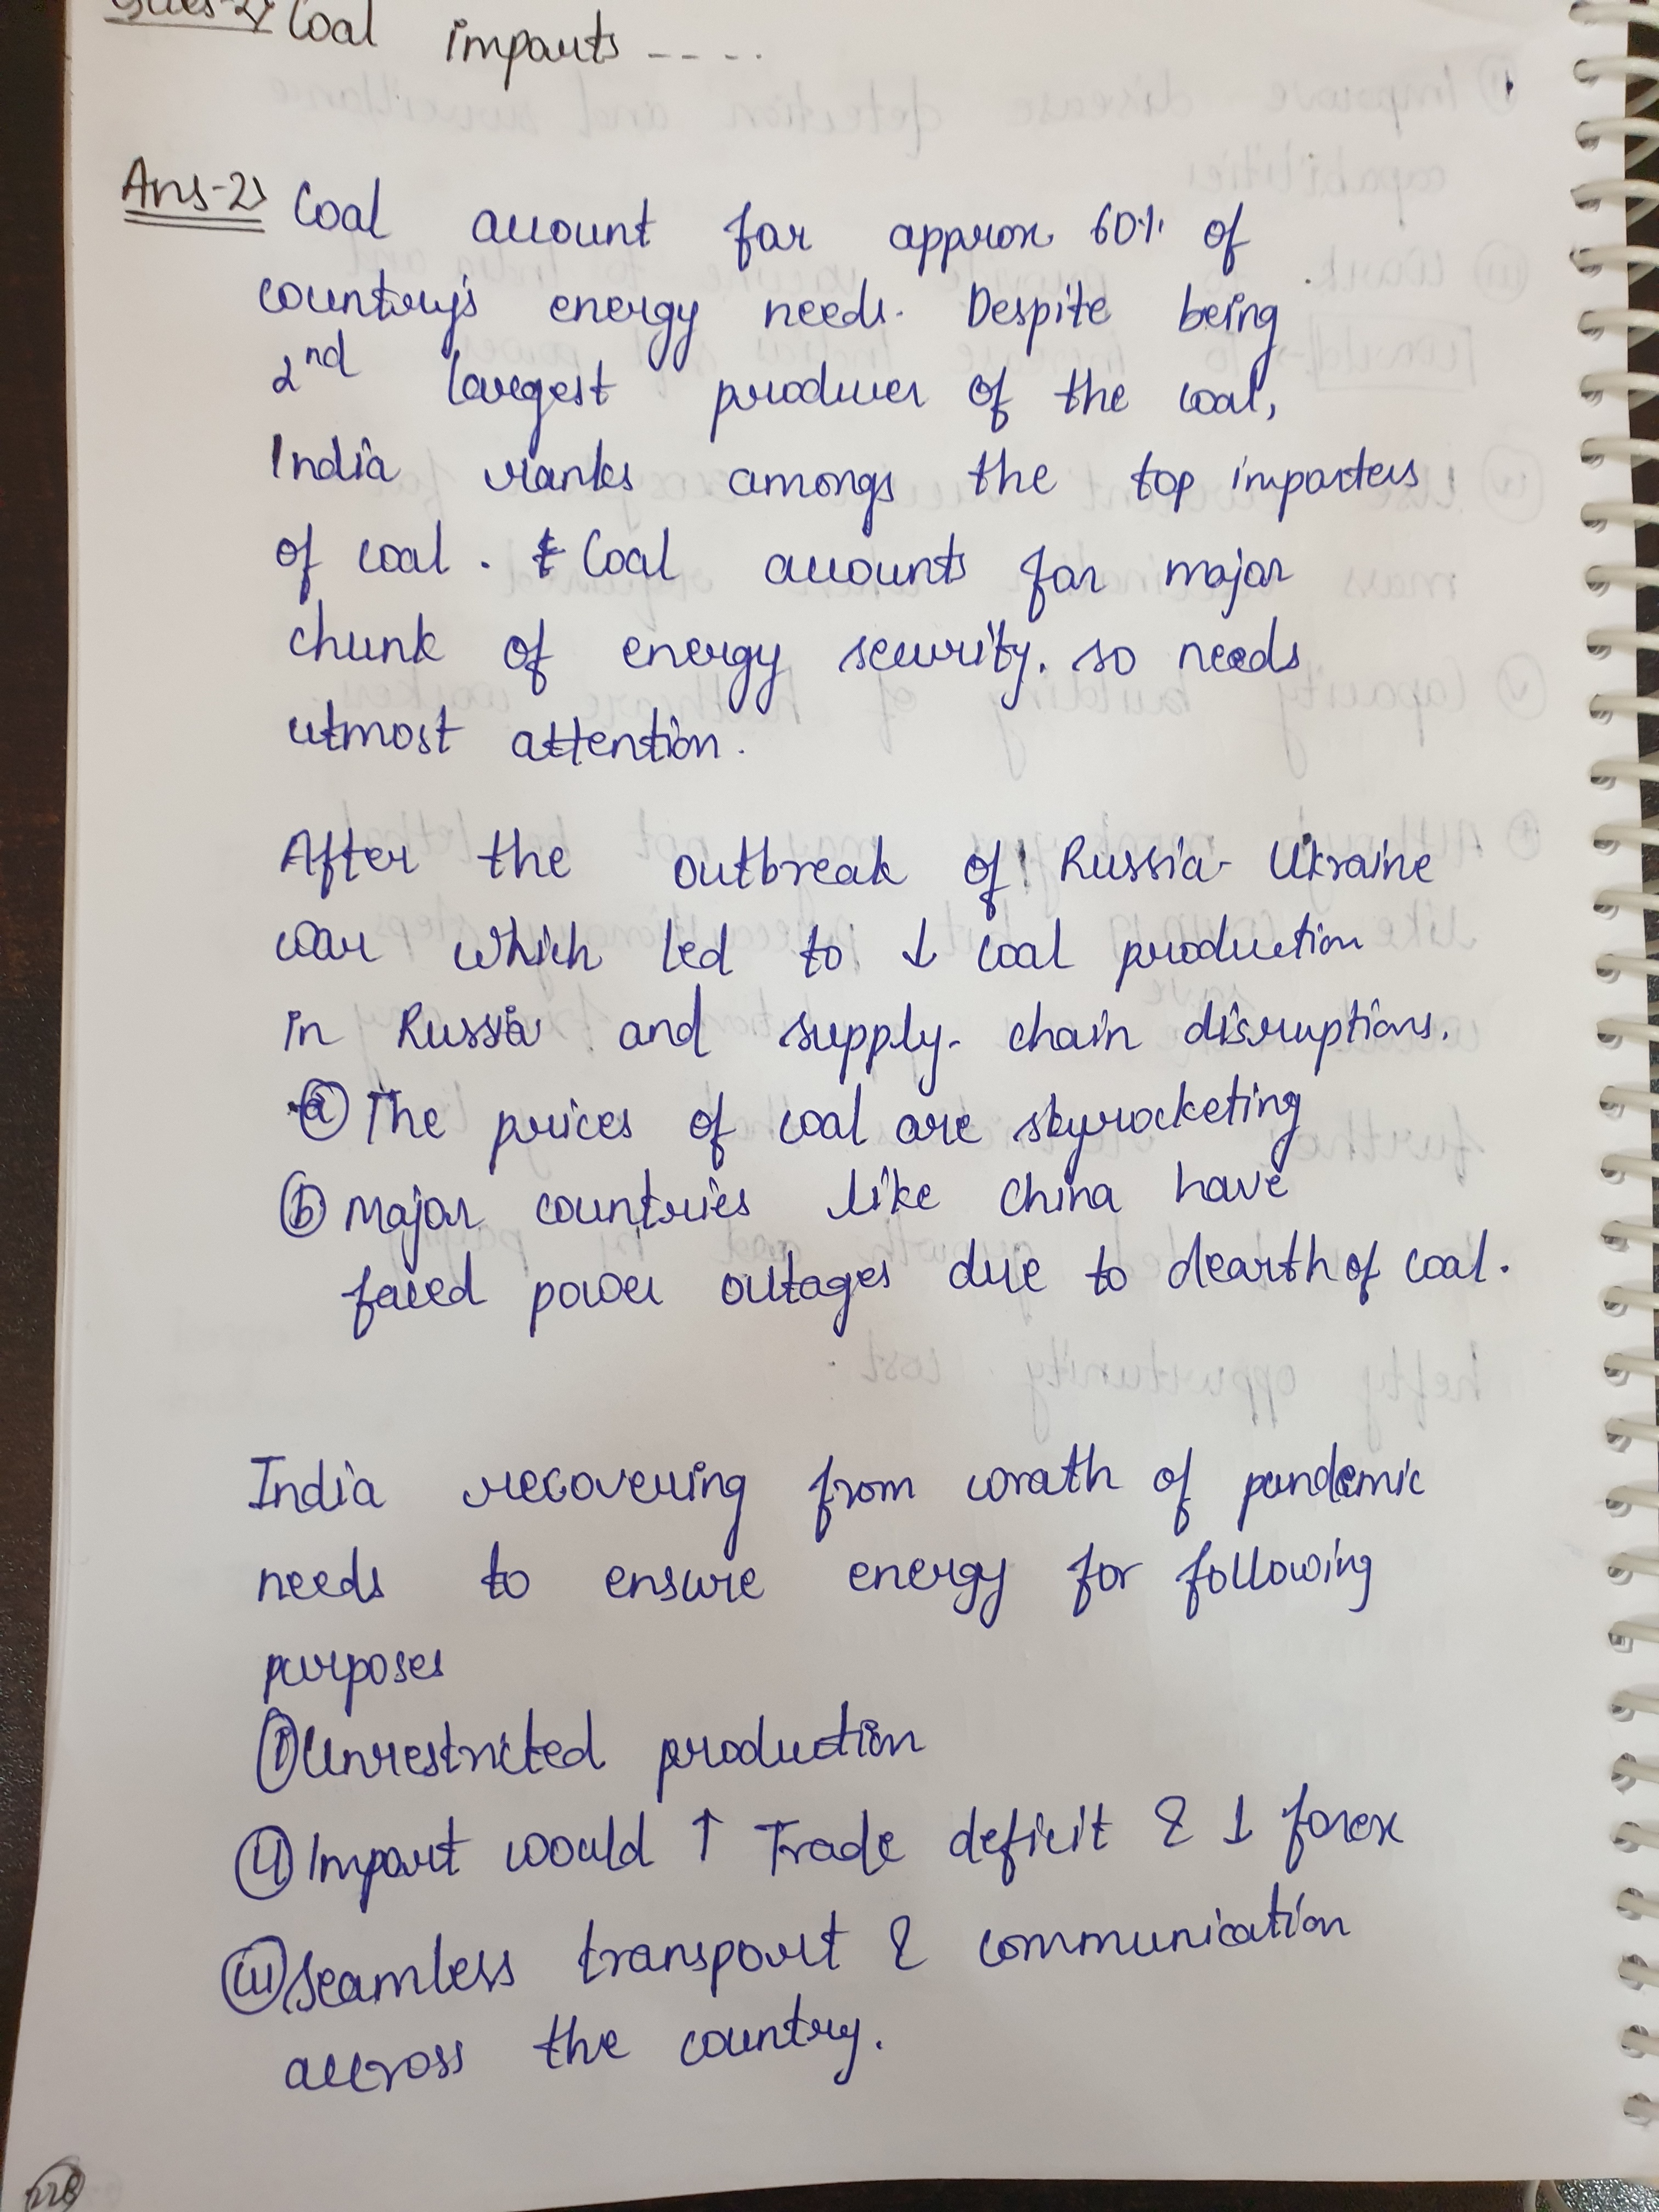 Ques-2) Coal imports ----
Ans-2) Coal account for approx. 60% of
country's energy needs. Despite being
2nd largest producer of the coal,
India ranks amongs the top importers
of coal. Coal accounts for major
chunk of energy security. so needs
utmost attention.
After the outbreak of Russia-Ukraine
war which led to ↓ coal production
in Russia and supply-chain disruptions.
(a) The prices of coal are skyrocketing
(b) Major countries like China have
faced power outages due to dearth of coal.
India recovering from wrath of pandemic
needs to ensure energy for following
purposes
(i) Unrestricted production
(ii) Import would ↑ Trade deficit & ↓ forex
(iii) Seamless transport & communication
accross the country.